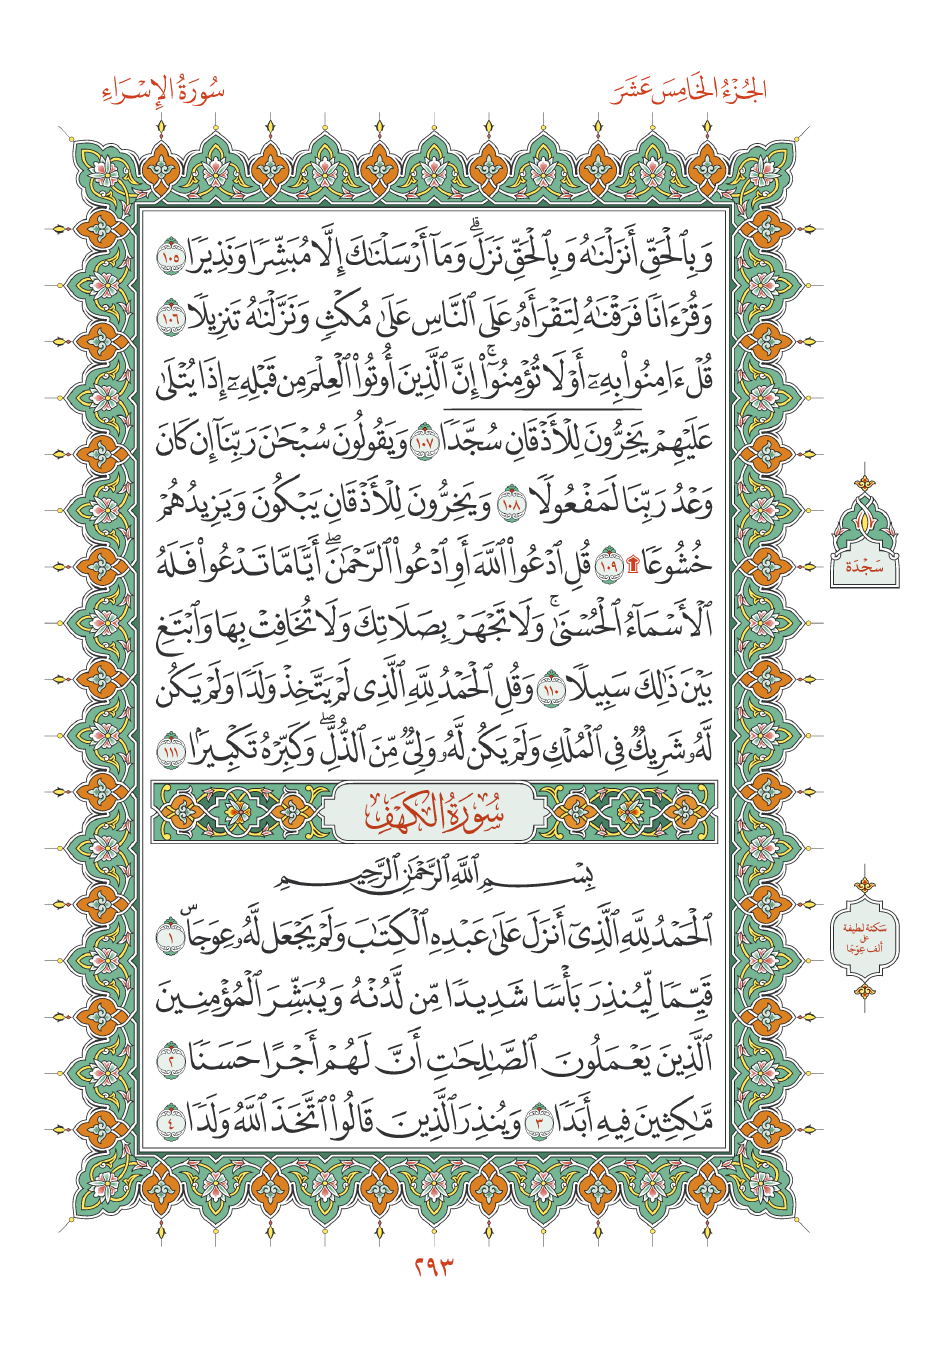 الجُزْءُ الخَامِسَ عَشَرَ
سُورَةُ الإِسْرَاءِ
وَبِٱلْحَقِّ أَنزَلْنَٰهُ وَبِٱلْحَقِّ نَزَلَۗ وَمَآ أَرْسَلْنَٰكَ إِلَّا مُبَشِّرًا وَنَذِيرًا ١٠٥
وَقُرْءَانًا فَرَقْنَٰهُ لِتَقْرَأَهُۥ عَلَى ٱلنَّاسِ عَلَىٰ مُكْثٍ وَنَزَّلْنَٰهُ تَنزِيلًا ١٠٦
قُلْ ءَامِنُوا۟ بِهِۦٓ أَوْ لَا تُؤْمِنُوٓا۟ۚ إِنَّ ٱلَّذِينَ أُوتُوا۟ ٱلْعِلْمَ مِن قَبْلِهِۦٓ إِذَا يُتْلَىٰ
عَلَيْهِمْ يَخِرُّونَ لِلْأَذْقَانِ سُجَّدًا ١٠٧ وَيَقُولُونَ سُبْحَٰنَ رَبِّنَآ إِن كَانَ
وَعْدُ رَبِّنَا لَمَفْعُولًا ١٠٨ وَيَخِرُّونَ لِلْأَذْقَانِ يَبْكُونَ وَيَزِيدُهُمْ
خُشُوعًا ۩ ١٠٩ قُلِ ٱدْعُوا۟ ٱللَّهَ أَوِ ٱدْعُوا۟ ٱلرَّحْمَٰنَۖ أَيًّا مَّا تَدْعُوا۟ فَلَهُ
ٱلْأَسْمَآءُ ٱلْحُسْنَىٰۚ وَلَا تَجْهَرْ بِصَلَاتِكَ وَلَا تُخَافِتْ بِهَا وَٱبْتَغِ
بَيْنَ ذَٰلِكَ سَبِيلًا ١١٠ وَقُلِ ٱلْحَمْدُ لِلَّهِ ٱلَّذِى لَمْ يَتَّخِذْ وَلَدًا وَلَمْ يَكُن
لَّهُۥ شَرِيكٌ فِى ٱلْمُلْكِ وَلَمْ يَكُن لَّهُۥ وَلِىٌّ مِّنَ ٱلذُّلِّۖ وَكَبِّرْهُ تَكْبِيرًۢا ١١١
سُورَةُ الكَهْفِ
بِسْمِ ٱللَّهِ ٱلرَّحْمَٰنِ ٱلرَّحِيمِ
ٱلْحَمْدُ لِلَّهِ ٱلَّذِىٓ أَنزَلَ عَلَىٰ عَبْدِهِ ٱلْكِتَٰبَ وَلَمْ يَجْعَل لَّهُۥ عِوَجَاۜ ١
قَيِّمًا لِّيُنذِرَ بَأْسًا شَدِيدًا مِّن لَّدُنْهُ وَيُبَشِّرَ ٱلْمُؤْمِنِينَ
ٱلَّذِينَ يَعْمَلُونَ ٱلصَّٰلِحَٰتِ أَنَّ لَهُمْ أَجْرًا حَسَنًا ٢
مَّٰكِثِينَ فِيهِ أَبَدًا ٣ وَيُنذِرَ ٱلَّذِينَ قَالُوا۟ ٱتَّخَذَ ٱللَّهُ وَلَدًا ٤
سَجْدَة
سَكتة لطيفة
على
ألف عِوَجَا
٢٩٣